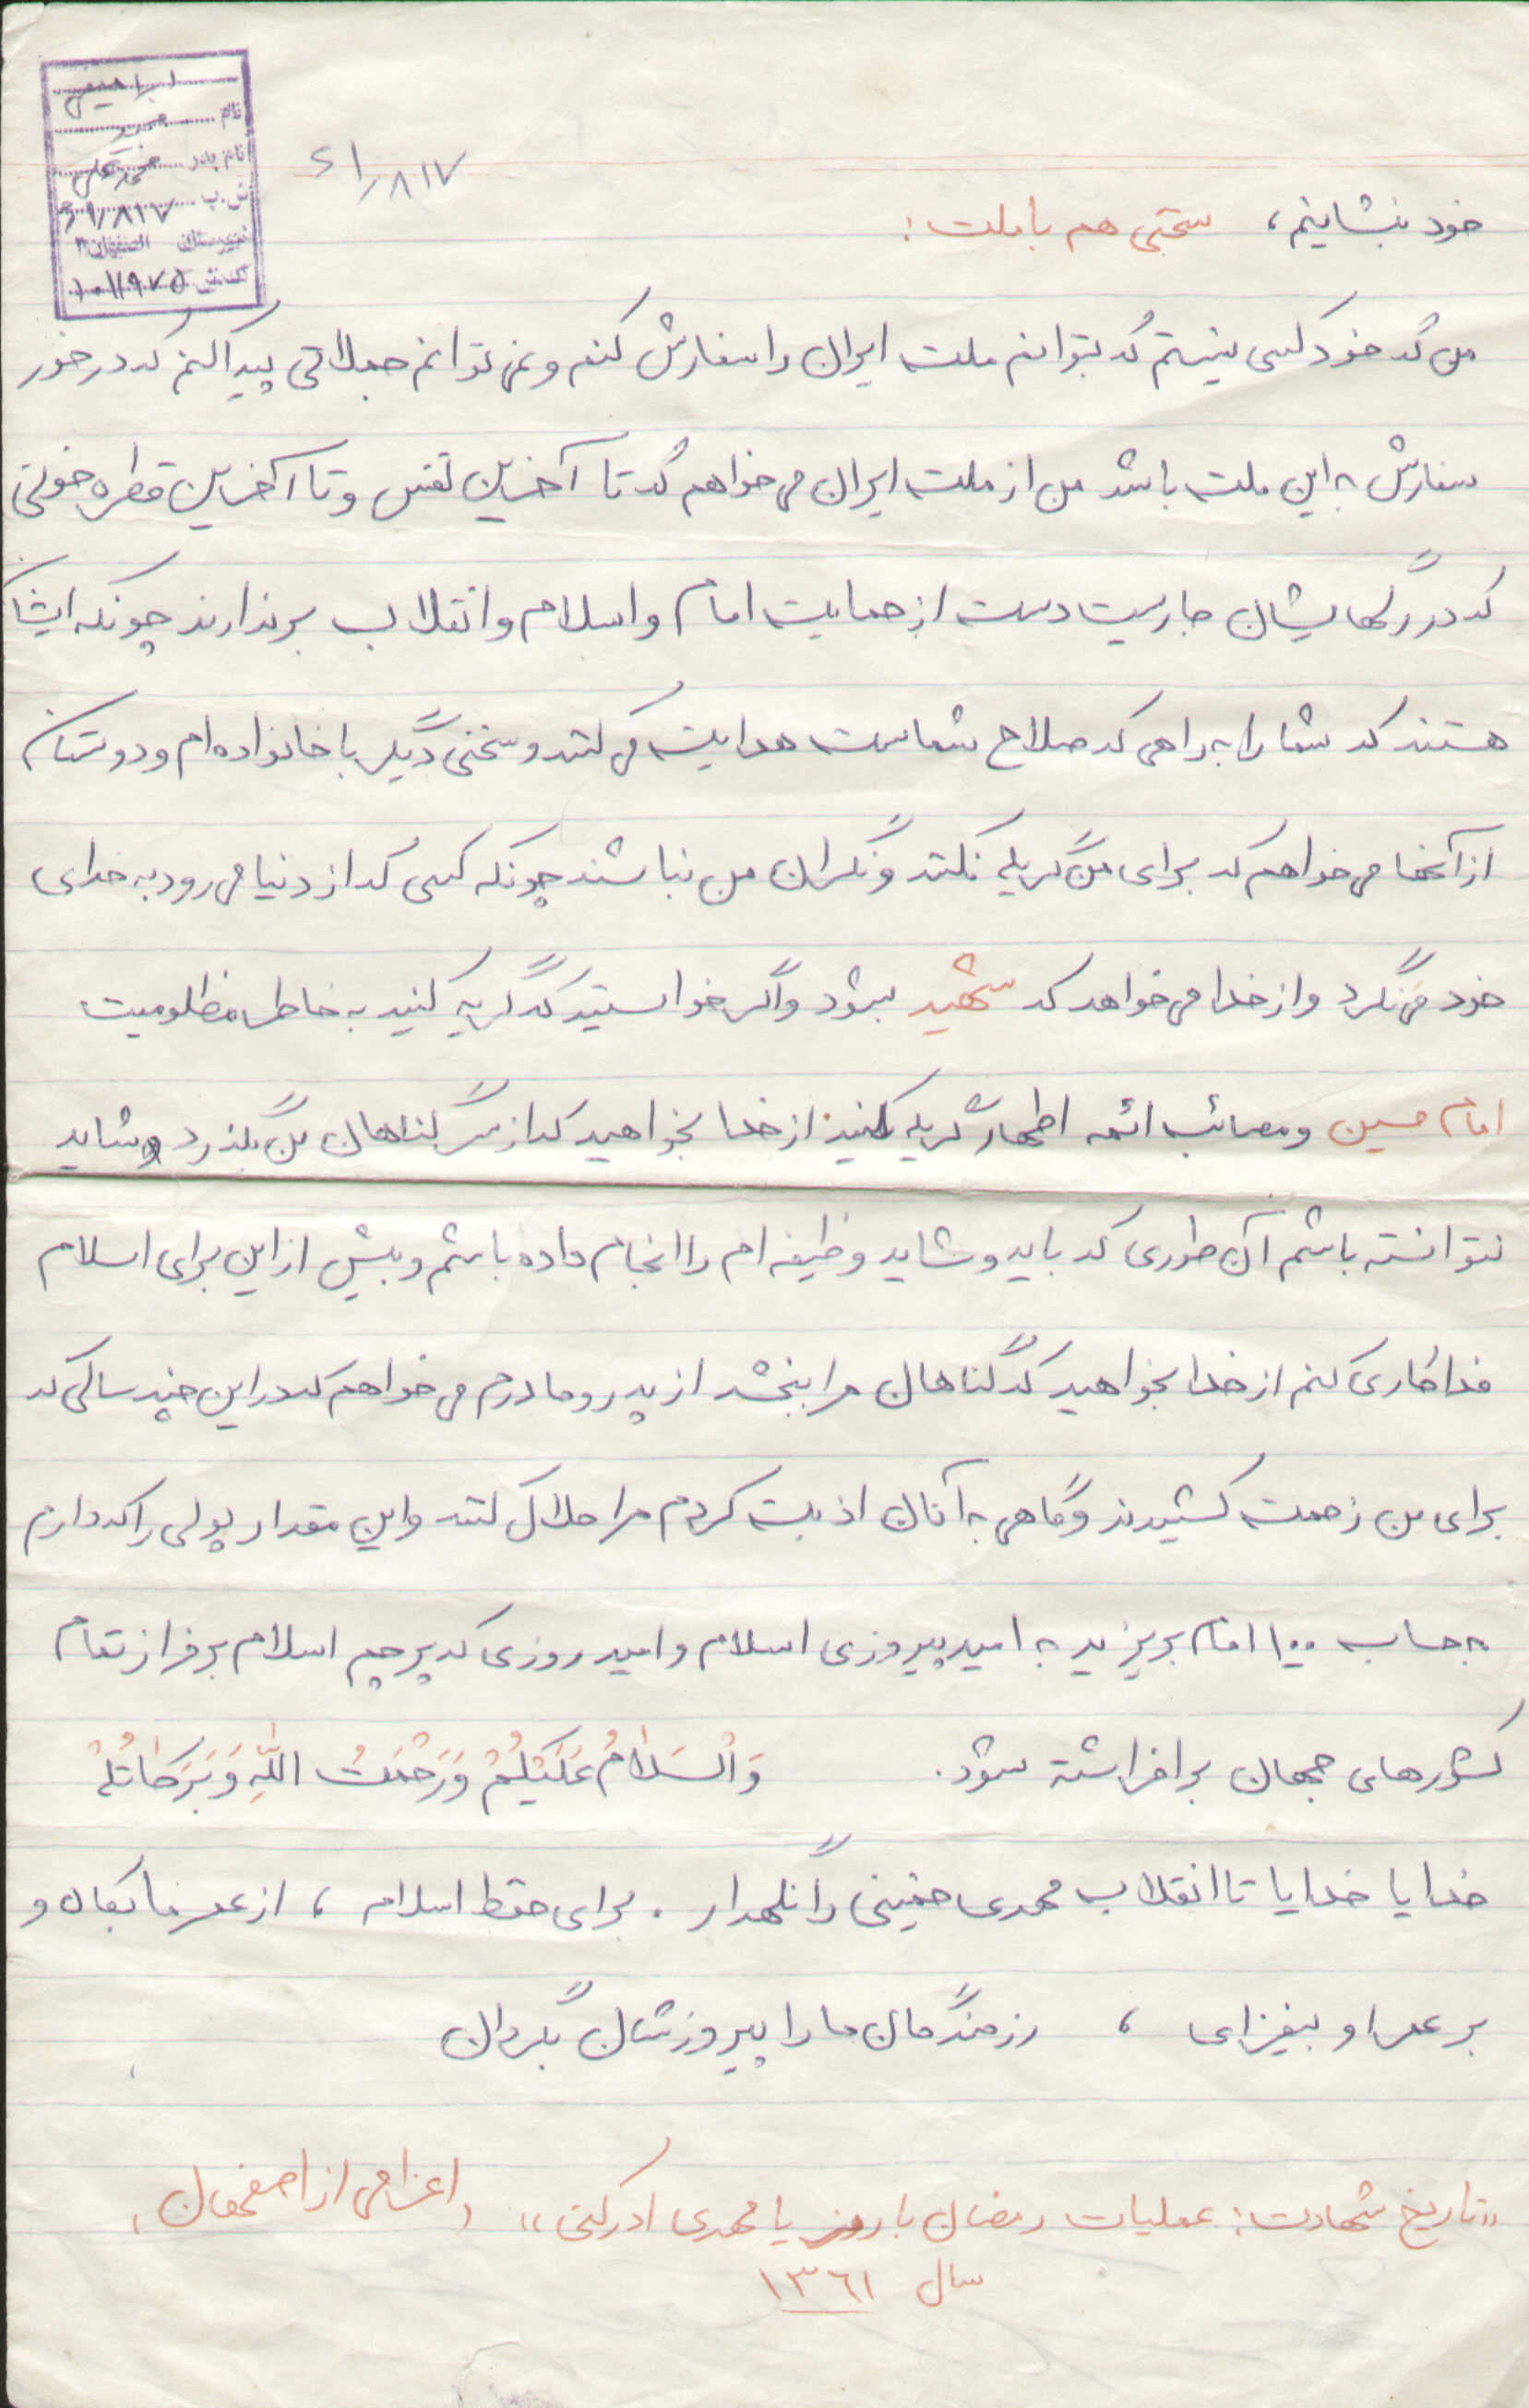 ابراهیمی
نام مجید
نام پدر محمدعلی
ش.پ ۶۱/۸۱۷
شهرستان اصفهان ۲
کد ش ۱۰۱۱۹۷۵
۶۱/۸۱۷
خود بنشانیم، سخنی هم با ملت:
من که خود کسی نیستم که بتوانم ملت ایران را سفارش کنم و نمی توانم جملاتی پیدا کنم که در خور
سفارش به این ملت باشد من از ملت ایران می خواهم که تا آخرین نفس و تا آخرین قطره خونی
که در رگهایشان جاریست دست از حمایت امام و اسلام و انقلاب برندارند چونکه ایشان
هستند که شما را به راهی که صلاح شماست هدایت می کنند و سخنی دیگر با خانواده ام و دوستان
از آنها می خواهم که برای من گریه نکنند و نگران من نباشند چونکه کسی که از دنیا می رود به خدای
خود می نگرد و از خدا می خواهد که شهید بشود و اگر خواستید که گریه کنید به خاطر مظلومیت
امام حسین و مصائب ائمه اطهار گریه کنید از خدا بخواهید که از سر گناهان من بگذرد و شاید
نتوانسته باشم آن طوری که باید و شاید وظیفه ام را انجام داده باشم و بیش از این برای اسلام
فداکاری کنم از خدا بخواهید که گناهان مرا ببخشد از پدر و مادرم می خواهم که در این چند سالی که
برای من زحمت کشیدند و گاهی به آنان اذیت کردم مرا حلال کنند و این مقدار پولی را که دارم
به حساب ۱۰۰ امام بریزید به امید پیروزی اسلام و امید روزی که پرچم اسلام بر فراز تمام
کشورهای جهان برافراشته شود. وَالسَلامُ عَلَیْکُمْ وَرَحْمَتُ اللّهِ وَبَرَکاتُهُ
خدایا خدایا تا انقلاب مهدی خمینی را نگهدار. برای حفظ اسلام، از عمر ما بکاه و
بر عمر او بیفزای، رزمندگان ما را پیروزشان بگردان
«تاریخ شهادت: عملیات رمضان با رمز یا مهدی ادرکنی» (اعزامی از اصفهان)
سال ۱۳۶۱